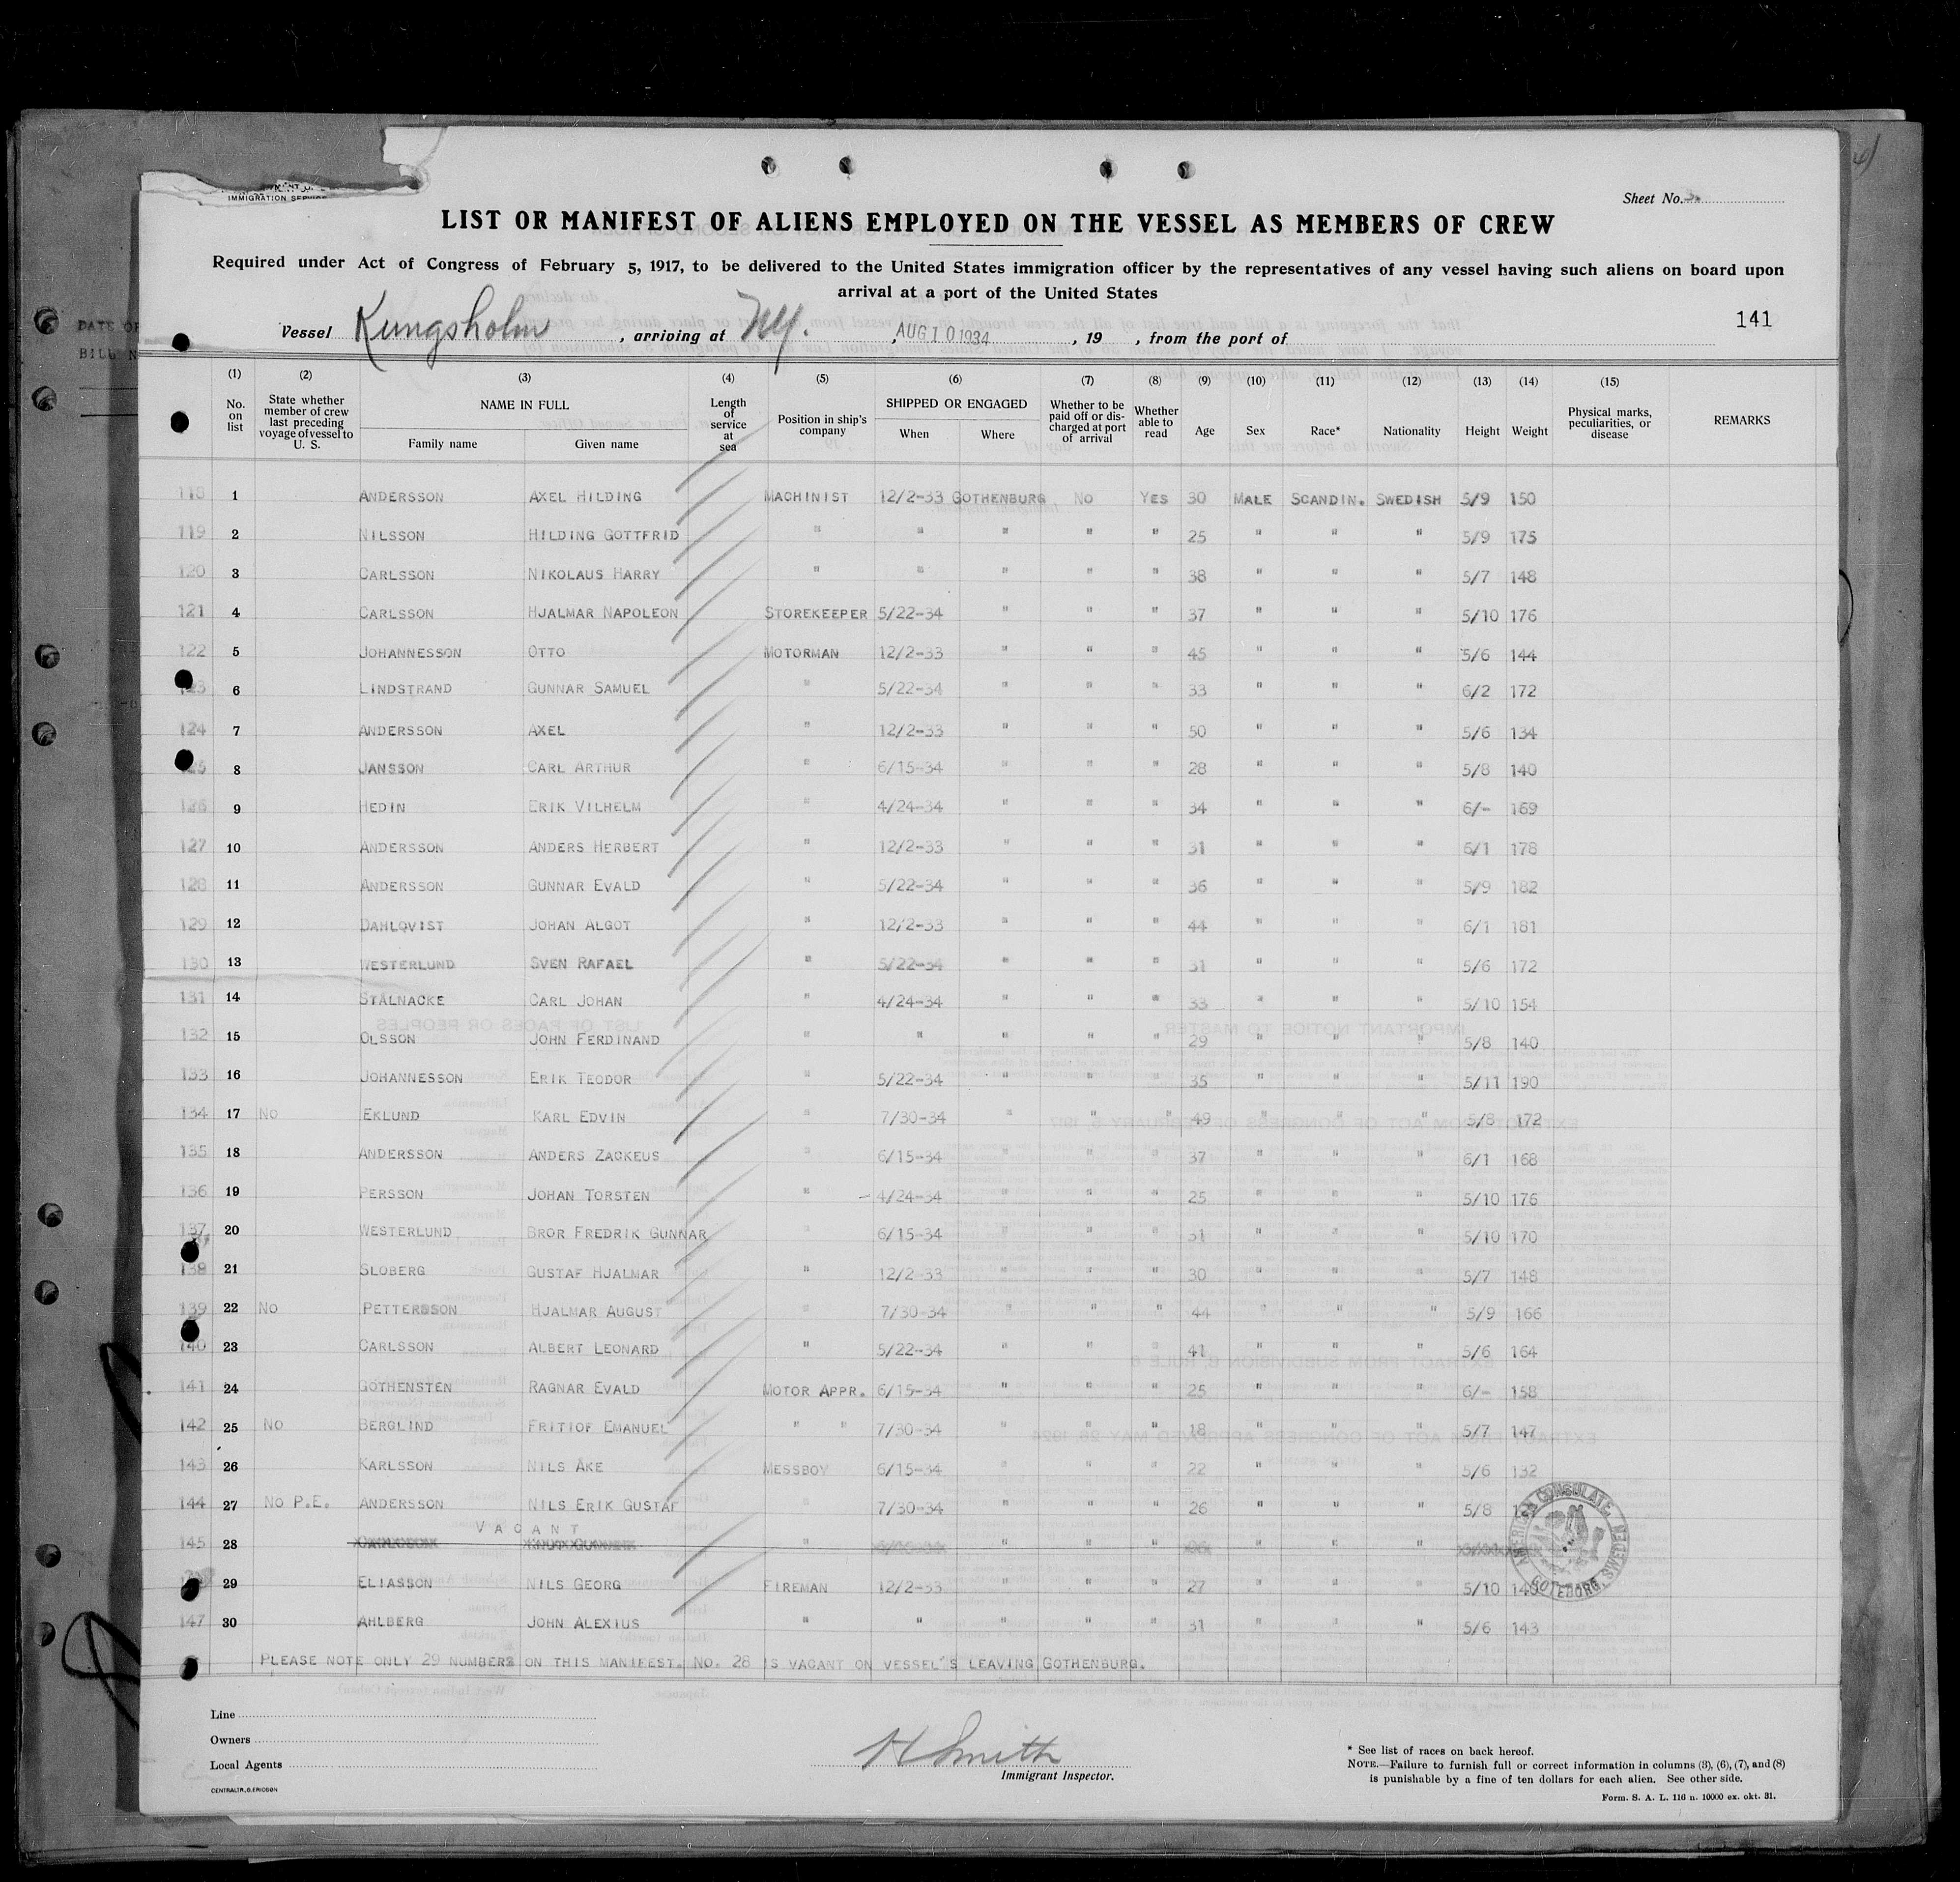 IMMIGRATION SERVICE
Sheet No.
LIST OR MANIFEST OF ALIENS EMPLOYED ON THE VESSEL AS MEMBERS OF CREW
Required under Act of Congress of February 5, 1917, to be delivered to the United States immigration officer by the representatives of any vessel having such aliens on board upon
arrival at a port of the United States
141
Vessel Kungsholm, arriving at N.Y., AUG 10 1934, 19 , from the port of
(1) (2) (3) (4) (5) (6) (7) (8) (9) (10) (11) (12) (13) (14) (15)
No. on list
State whether member of crew last preceding voyage of vessel to U. S.
NAME IN FULL
Family name Given name
Length of service at sea
Position in ship's company
SHIPPED OR ENGAGED
When Where
Whether to be paid off or discharged at port of arrival
Whether able to read
Age Sex Race* Nationality Height Weight
Physical marks, peculiarities, or disease
REMARKS
118 1 ANDERSSON AXEL HILDING MACHINIST 12/2-33 GOTHENBURG NO YES 30 MALE SCANDIN. SWEDISH 5/9 150
119 2 NILSSON HILDING GOTTFRID " " " " " 25 " " " 5/9 175
120 3 CARLSSON NIKOLAUS HARRY " " " " " 38 " " " 5/7 148
121 4 CARLSSON HJALMAR NAPOLEON STOREKEEPER 5/22-34 " " " 37 " " " 5/10 176
122 5 JOHANNESSON OTTO MOTORMAN 12/2-33 " " " 45 " " " 5/6 144
6 LINDSTRAND GUNNAR SAMUEL " 5/22-34 " " " 33 " " " 6/2 172
124 7 ANDERSSON AXEL " 12/2-33 " " " 50 " " " 5/6 134
8 JANSSON CARL ARTHUR " 6/15-34 " " " 28 " " " 5/8 140
126 9 HEDIN ERIK VILHELM " 4/24-34 " " " 34 " " " 6/- 169
127 10 ANDERSSON ANDERS HERBERT " 12/2-33 " " " 31 " " " 6/1 178
128 11 ANDERSSON GUNNAR EVALD " 5/22-34 " " " 36 " " " 5/9 182
129 12 DAHLQVIST JOHAN ALGOT " 12/2-33 " " " 44 " " " 6/1 181
130 13 WESTERLUND SVEN RAFAEL " 5/22-34 " " " 31 " " " 5/6 172
131 14 STÅLNACKE CARL JOHAN " 4/24-34 " " " 33 " " " 5/10 154
132 15 OLSSON JOHN FERDINAND " " " " " 29 " " " 5/8 140
133 16 JOHANNESSON ERIK TEODOR " 5/22-34 " " " 35 " " " 5/11 190
134 17 NO EKLUND KARL EDVIN " 7/30-34 " " " 49 " " " 5/8 172
135 18 ANDERSSON ANDERS ZACKEUS " 6/15-34 " " " 37 " " " 6/1 168
136 19 PERSSON JOHAN TORSTEN " 4/24-34 " " " 25 " " " 5/10 176
137 20 WESTERLUND BROR FREDRIK GUNNAR " 6/15-34 " " " 31 " " " 5/10 170
138 21 SLOBERG GUSTAF HJALMAR " 12/2-33 " " " 30 " " " 5/7 148
139 22 NO PETTERSSON HJALMAR AUGUST " 7/30-34 " " " 44 " " " 5/9 166
140 23 CARLSSON ALBERT LEONARD " 5/22-34 " " " 41 " " " 5/6 164
141 24 GOTHENSTEN RAGNAR EVALD MOTOR APPR. 6/15-34 " " " 25 " " " 6/- 158
142 25 NO BERGLIND FRITIOF EMANUEL " " 7/30-34 " " " 18 " " " 5/7 147
143 26 KARLSSON NILS ÅKE MESSBOY 6/15-34 " " " 22 " " " 5/6 132
144 27 NO P.E. ANDERSSON NILS ERIK GUSTAF 7/30-34 " " " 26 " " " 5/8
VACANT
145 28 " " " " " " "
29 ELIASSON NILS GEORG FIREMAN 12/2-33 " " " 27 " " " 5/10 140
147 30 AHLBERG JOHN ALEXIUS " " " " " 31 " " " 5/6 143
PLEASE NOTE ONLY 29 NUMBERS ON THIS MANIFEST. NO. 28 IS VACANT ON VESSEL'S LEAVING GOTHENBURG.
AMERICAN CONSULATE GOTEBORG, SWEDEN
Line
Owners
Local Agents
CENTRALTR., G. ERICSON
H Smith
Immigrant Inspector.
* See list of races on back hereof.
NOTE.—Failure to furnish full or correct information in columns (3), (6), (7), and (8)
is punishable by a fine of ten dollars for each alien. See other side.
Form. S. A. L. 116 n. 10000 ex. okt. 31.